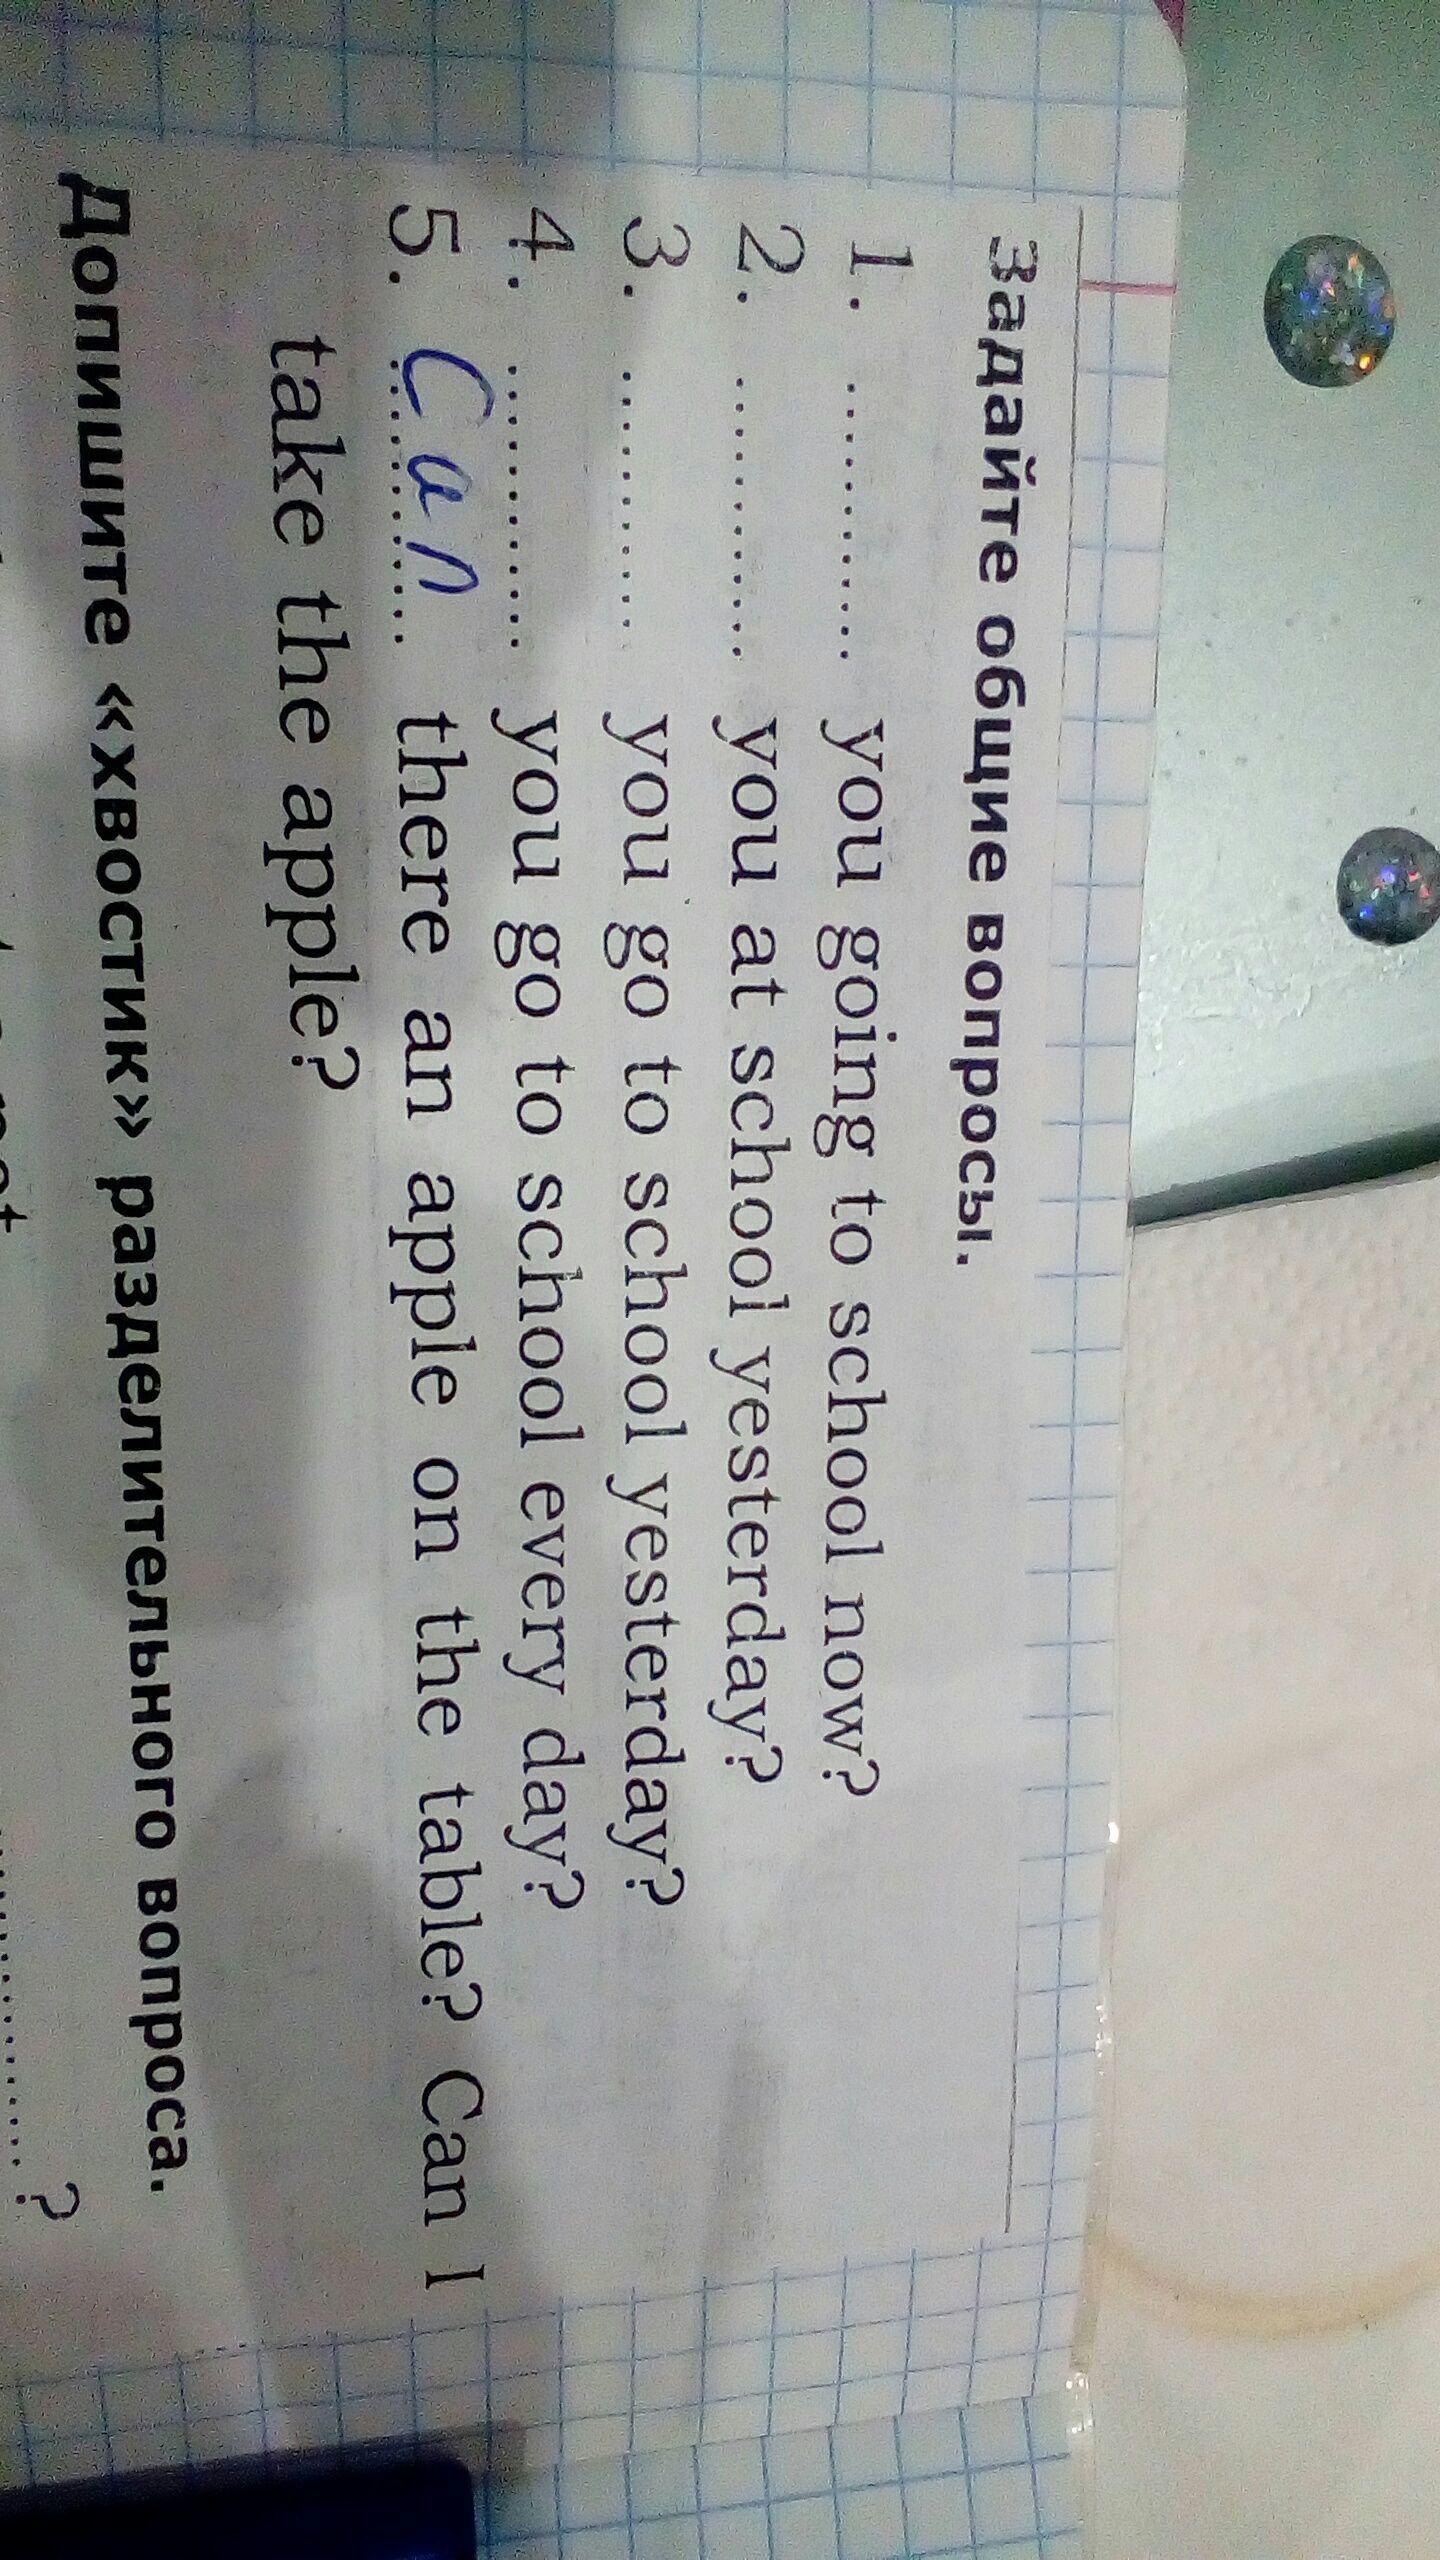 Задайте общие вопросы.
1. ............ you going to school now?
2. ............. you at school yesterday?
3. ............ you go to school yesterday?
4. ............. you go to school every day?
5. Can there an apple on the table? Can I
take the apple?
Допишите «хвостик» разделительного вопроса.
?